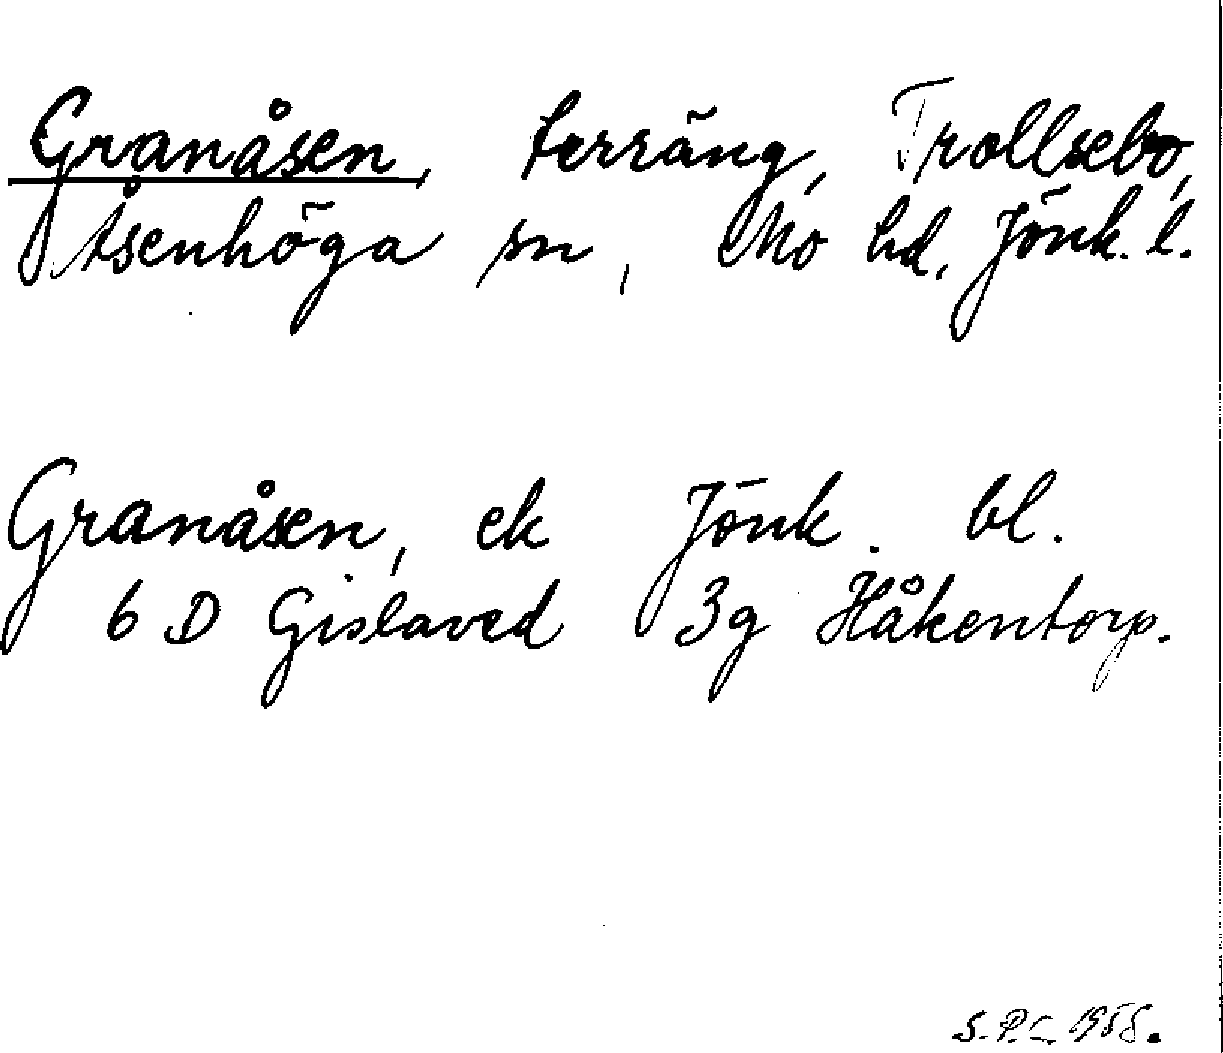 Granåsen, terräng, Trollsebo,
Åsenhöga sn, Mo hd, Jönk. l.
Granåsen, ek Jönk. bl.
6 D Gislaved 3g Håkentorp.
S.P.L 1958.